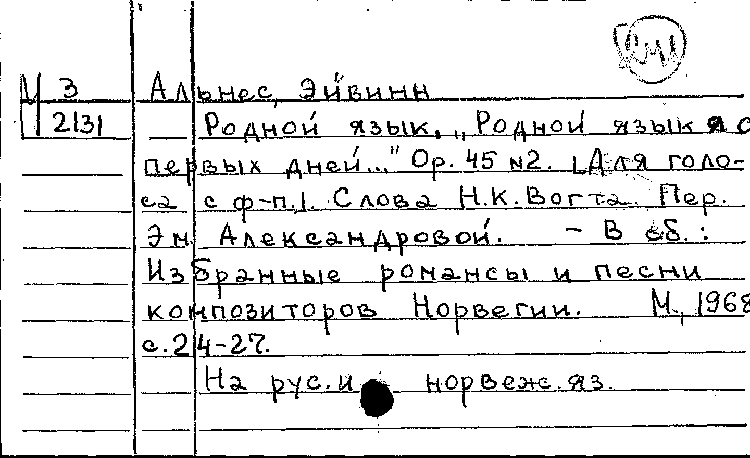 М 3 Альнес, Эйвинн
2131 Родной язык. „Родной язык я с
первых дней..." Op. 45 №2. [Для голо-
са с ф-п.]. Слова Н.К. Вогта. Пер.
Эм. Александровой. – В сб.:
Избранные романсы и песни
композиторов Норвегии. М., 1968
с. 24-27.
На рус. и норвежс. яз.